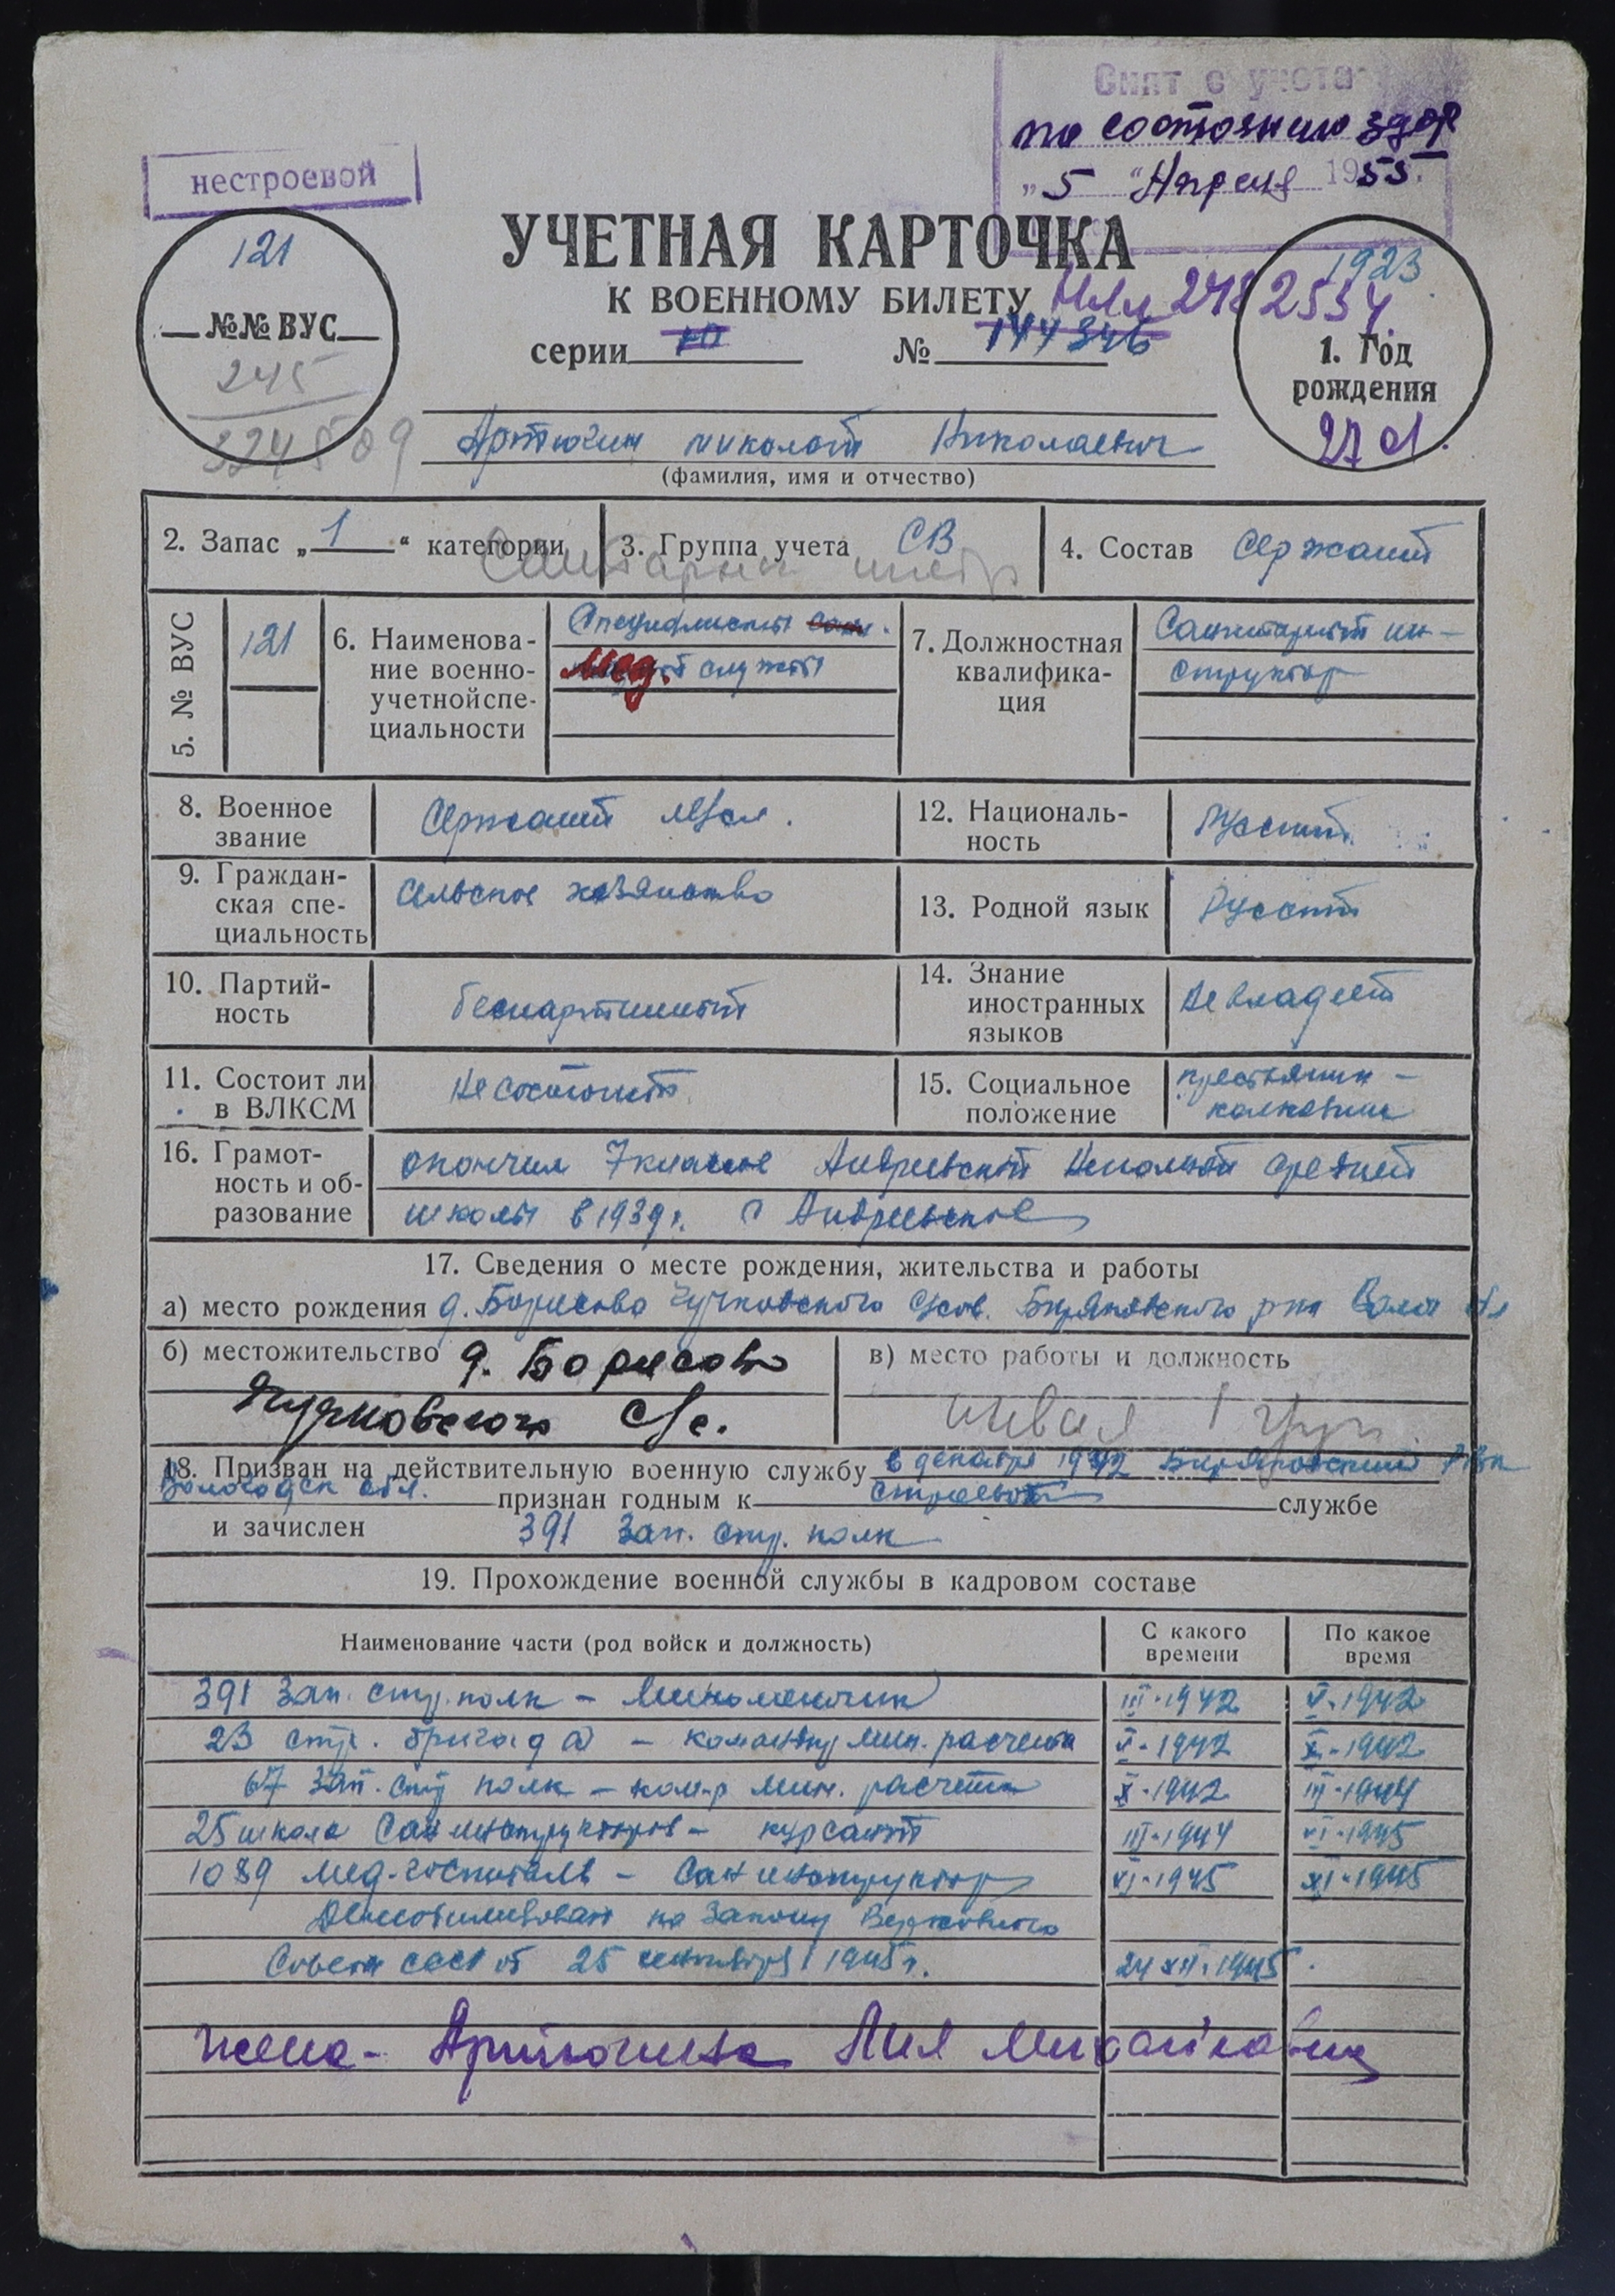 Снят с учета
по состоянию здор
"5" Апреля 1955г.
нестроевой
121
№№ ВУС
245
УЧЕТНАЯ КАРТОЧКА
К ВОЕННОМУ БИЛЕТУ
серии Ю № 144346
1923
1. Год
рождения
27 01.
Артюгин Николай Николаевич
(фамилия, имя и отчество)
2. Запас „1“ категории
3. Группа учета СВ
4. Состав Сержант
Санитарный инстр
5. № ВУС
121
6. Наименова-
ние военно-
учетной спе-
циальности
Специалисты сан.
мед. службы
7. Должностная
квалифика-
ция
Санитарный ин-
структор
8. Военное
звание
Сержант м/сл.
12. Националь-
ность
Русский
9. Граждан-
ская спе-
циальность
Сельское хозяйство
13. Родной язык
Русский
10. Партий-
ность
беспартийный
14. Знание
иностранных
языков
Не владеет
11. Состоит ли
в ВЛКСМ
Не состоит
15. Социальное
положение
крестьянин-
колхозник
16. Грамот-
ность и об-
разование
окончил 7 классов Андреевской Неполной средней
школы в 1939г. с Андреевское
17. Сведения о месте рождения, жительства и работы
а) место рождения д. Борисово Чучковского с/сов. Биряковского рна Волог обл
б) местожительство д. Борисово
Чучковского с/с.
в) место работы и должность
инвал 1 груп.
18. Призван на действительную военную службу в декабре 1942 Биряковский РВК
Вологодск обл. признан годным к строевой службе
и зачислен 391 Зап. стр. полк
19. Прохождение военной службы в кадровом составе
Наименование части (род войск и должность)
С какого
времени
По какое
время
391 Зап. стр. полк - Минометчик III-1942 V-1942
23 стр. бригада - командир мин. расчета V-1942 X-1942
67 зап. стр полк - ком-р мин. расчета X-1942 III-1944
25 школа Санинструкторов - курсант III-1944 VI-1945
1089 мед-госпиталь - Санинструктор VI-1945 XI-1945
Демобилизован по Закону Верховного
Совета СССР от 25 сентября 1945г. 24 XII.1945
жена - Артюгина Лия Михайловна